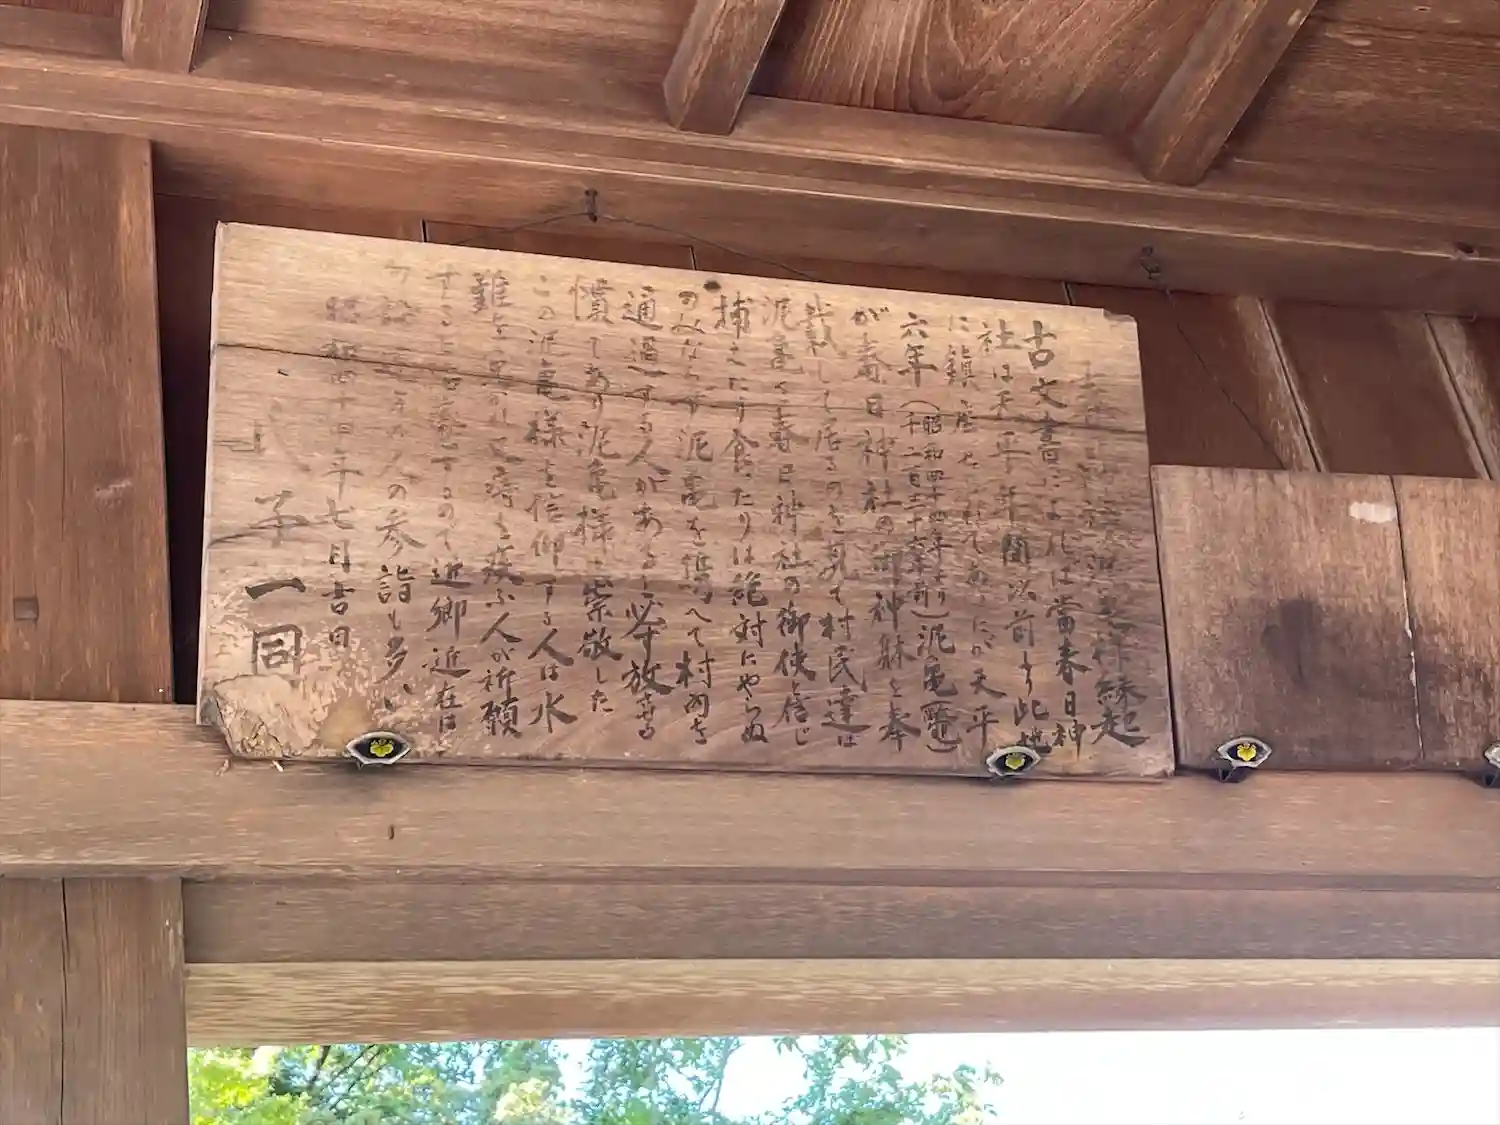 春日神社泥亀様縁起
古文書によれば當春日神
社は天平年間以前より此地
に鎮座せ 社であ にが天平
六年(昭和四十四年より 千二百三十六年前)泥亀(鼈)
が春日神社の御神躰を奉
戴して居るのを見て村民達は
泥亀を春日神社の御使と信じ
捕えたり食ったりは絶対にやらぬ
のみならず泥亀を捕へて村内を
通過する人があると必す放させる
慣 であり泥亀様は崇敬した
この泥亀様を信仰する人は水
難を 又痔を疾ふ人が祈願
すると するので近郷近在は
人の参詣も多い
昭和四十四年七月吉日
氏子一同